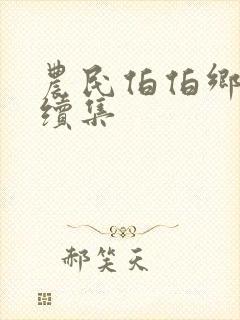 農民伯伯鄉
續集
郝笑天